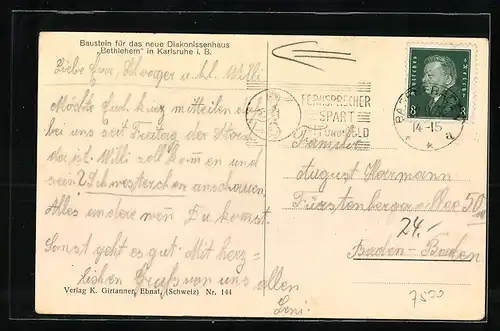 Baustein für das neue Diakonissenhaus
„Bethlehem" in Karlsruhe i. B.
Liebe Emm, Schwager u. kl. Willi
Möchte Euch kurz mitteilen
bei uns seit Freitag der Storch
da ist. Willi soll kommen und
sein 2 Schwesterchen anschauen
Alles andere wenn Du kommst.
Sonst geht es gut. Mit herz-
lichen Gruß von uns allen
Leni.
Verlag K. Girtanner, Ebnat, (Schweiz) Nr. 144
FERNSPRECHER
SPART
ZEIT UND GELD
BADEN
14-15
8
8
Familie
August Herrmann
Fürstenbergallee 50
24.-
Baden-Baden
7500